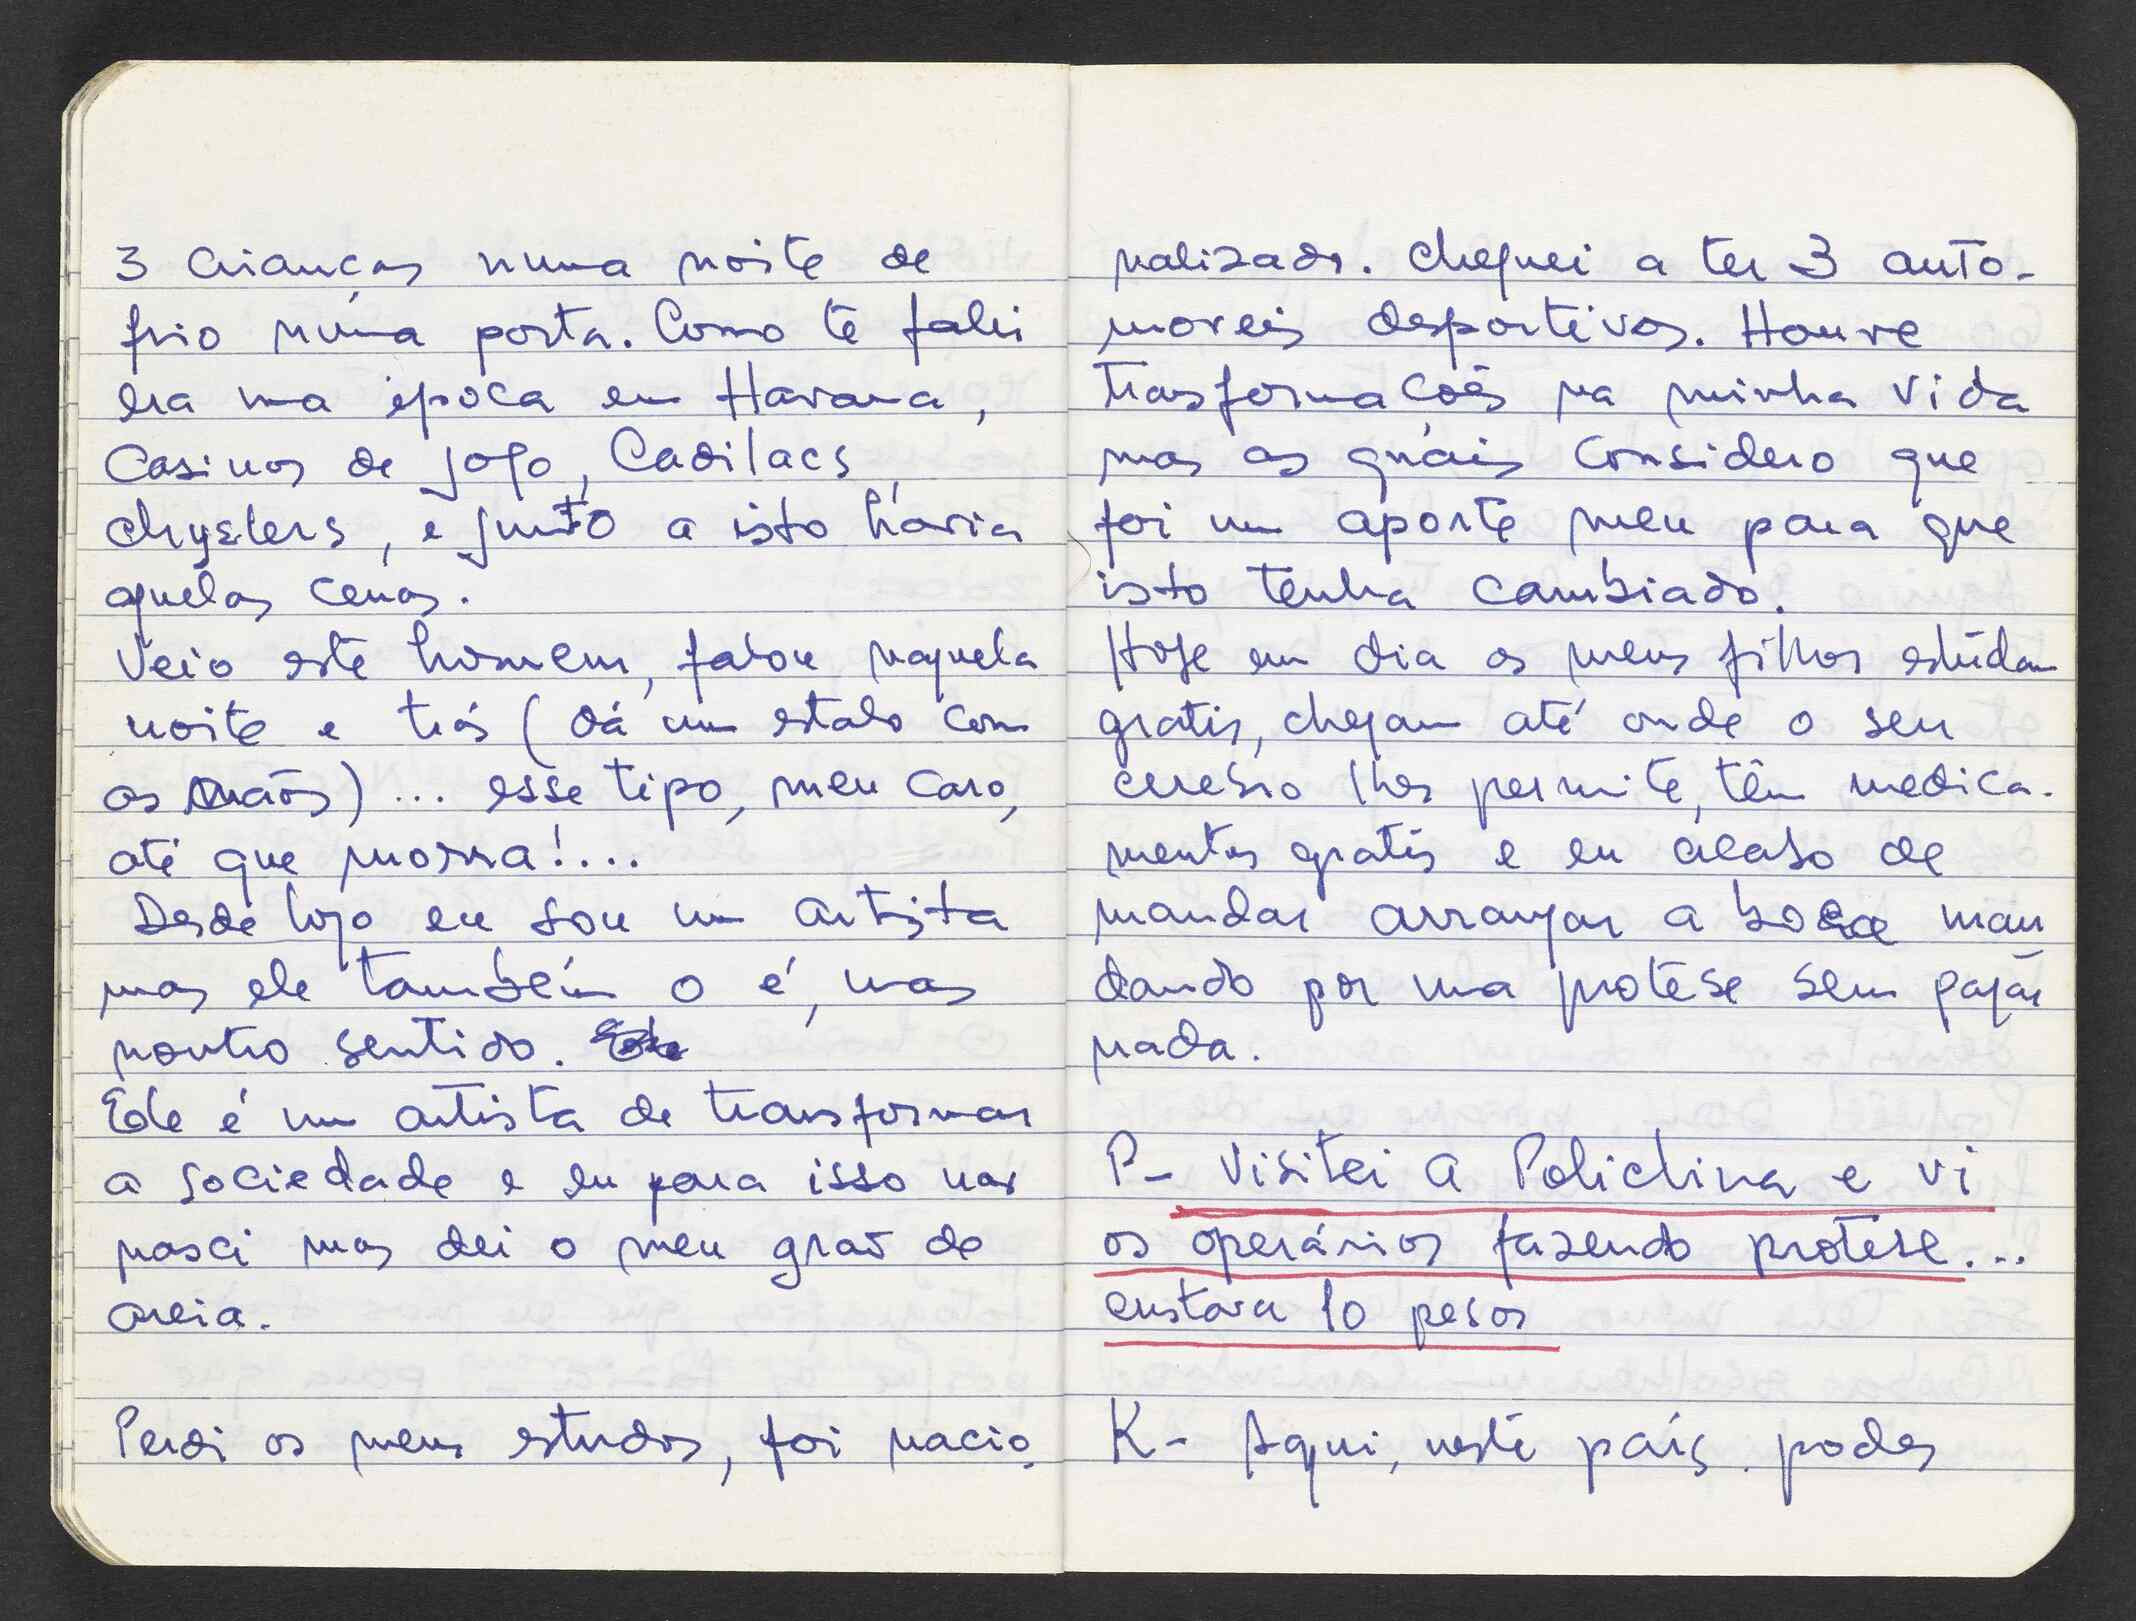 3 crianças numa noite de
frio numa porta. Como te falei
era uma época em Havana,
casinos de jogo, Cadilacs,
chryslers, e junto a isto hávia
aquelas cenas.
Veio este homem, falou naquela
noite e trás (dá um estalo com
as mãos)... esse tipo, meu caro,
até que morra!...
Desde logo eu sou um artista
mas ele também o é, mas
noutro sentido.
Ele é um artista de transformar
a sociedade e eu para isso nao
nasci mas dei o meu grao de
areia.
Perdi os meus estudos, foi nacio-
nalizado. Cheguei a ter 3 auto-
moveis desportivos. Houve
trasformaçoês na minha vida
mas as quais considero que
foi um aporte meu para que
isto tenha cambiado.
Hoje em dia os meus filhos estudam
gratis, chegam até onde o seu
cerebro lhes permite, têm medica-
mentos gratis e eu acabo de
mandar arranjar a boca man
dando por uma protese sem pagar
nada.
P- Visitei a Policlina e vi
os operários fazendo protese...
custava 10 pesos
K- Aqui, neste país, podes